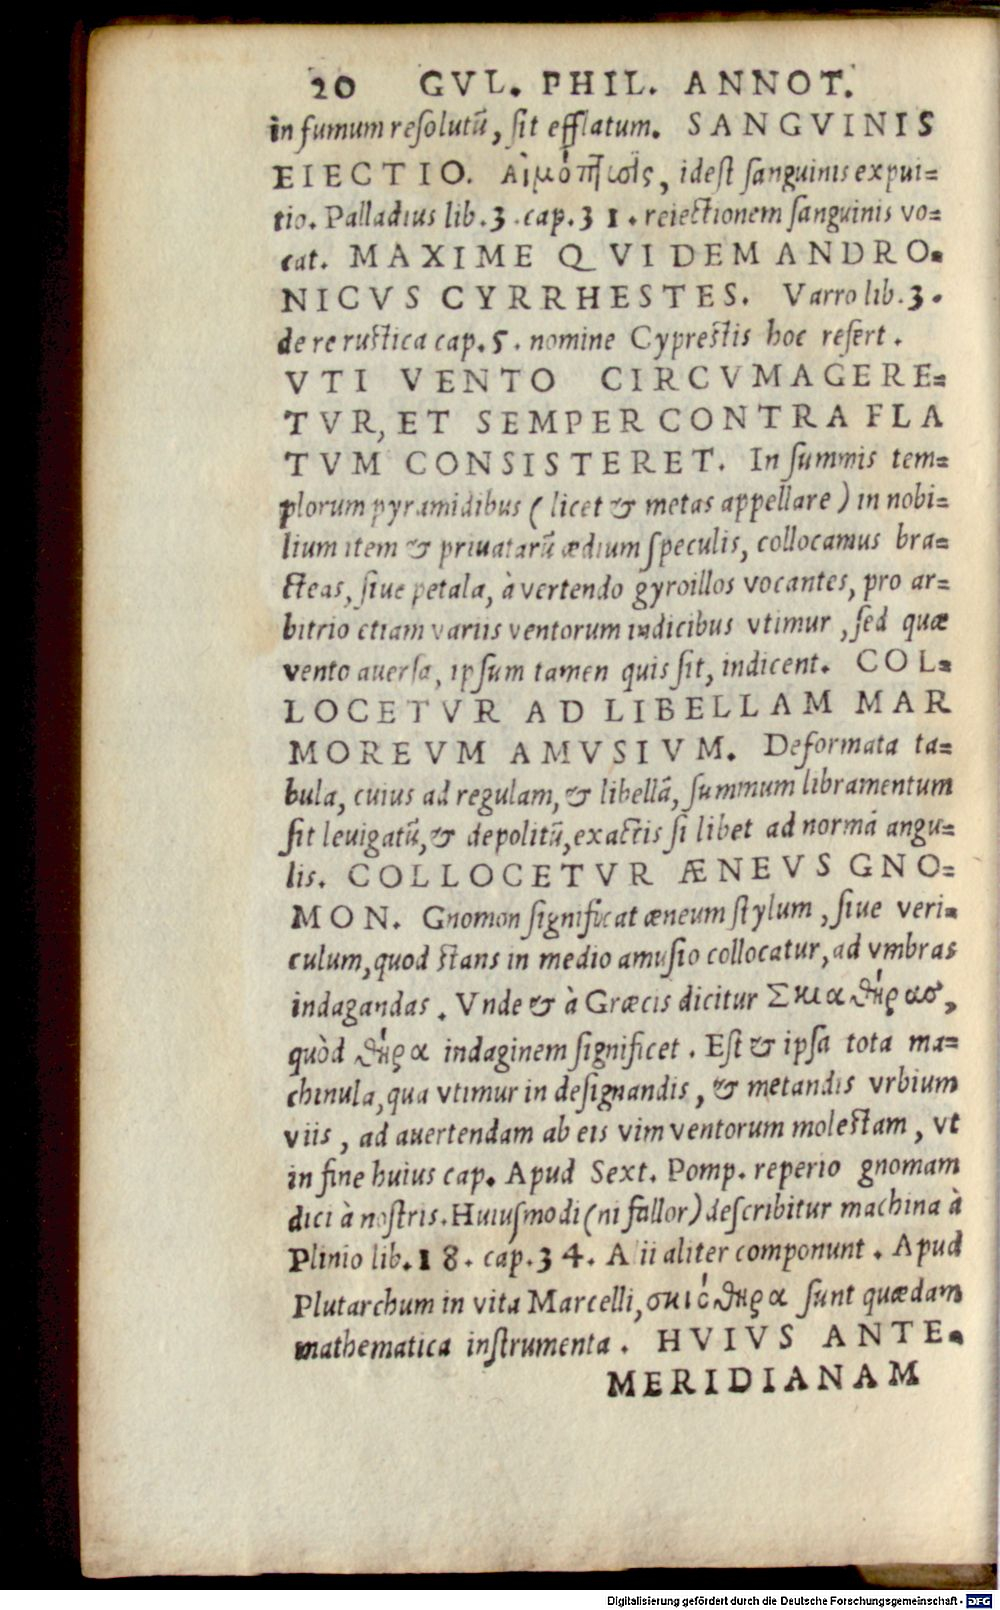 20 GVL. PHIL. ANNOT.
in fumum reſolutū, ſit efflatum. SANGVINIS
EIECTIO. αἱμόπτωσις, ideſt ſanguinis expui=
tio. Palladius lib. 3. cap. 31. reiectionem ſanguinis vo=
cat. MAXIME QVIDEM ANDRO=
NICVS CYRRHESTES. Varro lib. 3.
de re ruſtica cap. 5. nomine Cypreſtis hoc refert.
VTI VENTO CIRCVMAGERE=
TVR, ET SEMPER CONTRA FLA
TVM CONSISTERET. In ſummis tem=
plorum pyramidibus (licet & metas appellare) in nobi=
lium item & priuatarū ædium ſpeculis, collocamus bra=
cteas, ſiue petala, à vertendo gyroillos vocantes, pro ar=
bitrio etiam variis ventorum indicibus vtimur, ſed quæ
vento auerſa, ipſum tamen quis ſit, indicent. COL=
LOCETVR AD LIBELLAM MAR
MOREVM AMVSIVM. Deformata ta=
bula, cuius ad regulam, & libellā, ſummum libramentum
ſit leuigatū, & depolitū, exactis ſi libet ad normā angu=
lis. COLLOCETVR ÆNEVS GNO=
MON. Gnomon ſignificat æneum ſtylum, ſiue veri=
culum, quod ſtans in medio amuſio collocatur, ad vmbras
indagandas. Vnde & à Græcis dicitur Σκιαθήρας,
quòd θήρα indaginem ſignificet. Eſt & ipſa tota ma=
chinula, qua vtimur in deſignandis, & metandis vrbium
viis, ad auertendam ab eis vim ventorum moleſtam, vt
in fine huius cap. Apud Sext. Pomp. reperio gnomam
dici à noſtris. Huiuſmodi (ni fallor) deſcribitur machina à
Plinio lib. 18. cap. 34. Alii aliter componunt. Apud
Plutarchum in vita Marcelli, σκιόθηρα ſunt quædam
mathematica inſtrumenta. HVIVS ANTE=
MERIDIANAM
Digitalisierung gefördert durch die Deutsche Forschungsgemeinschaft - DFG